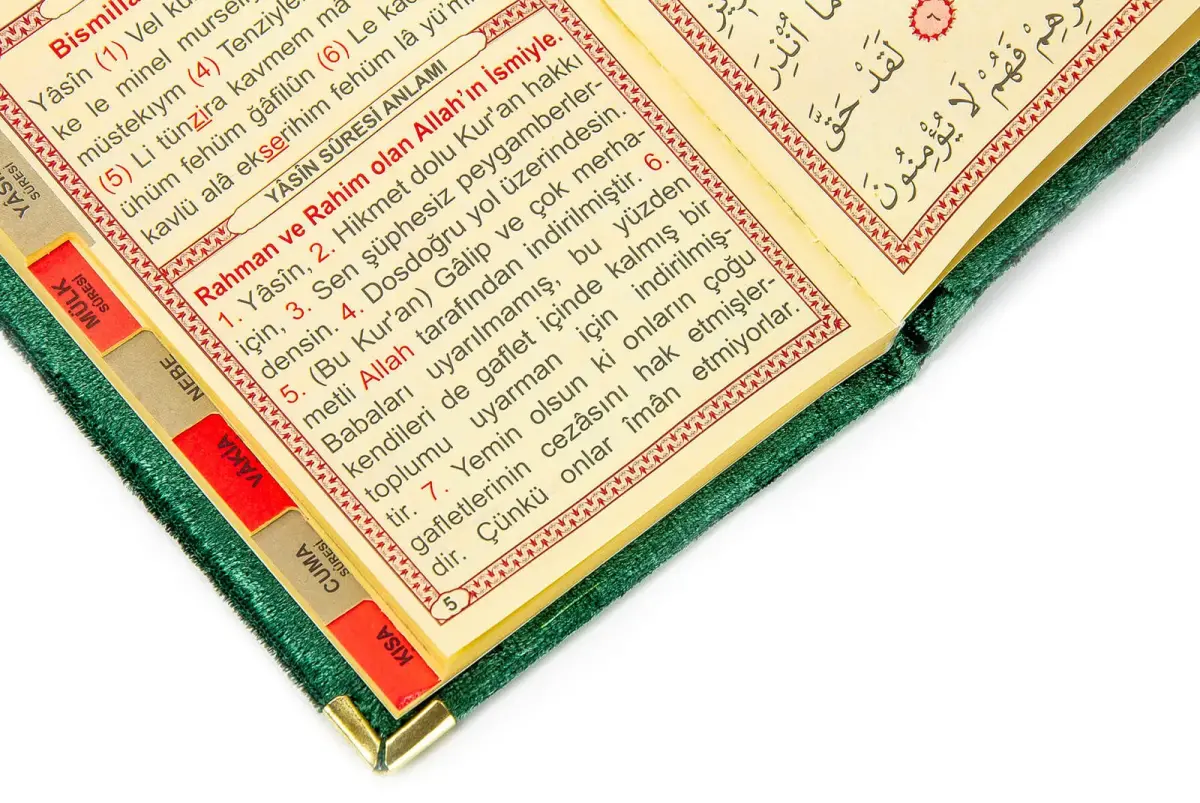 Bismilla
Yâsîn (1) Vel ku
ke le minel mursel
müstekıym (4) Tenziyle
(5) Li tünzira kavmem mâ
ühüm fehüm ğâfilûn (6) Le
kavlü alâ ekserihim fehüm lâ yü'mi
YÂSİN SÛRESİ ANLAMI
Rahman ve Rahim olan Allah'ın İsmiyle.
1. Yâsîn, 2. Hikmet dolu Kur'an hakkı
için, 3. Sen şüphesiz peygamberler-
densin. 4. Dosdoğru yol üzerindesin.
5. (Bu Kur'an) Gâlip ve çok merha-
metli Allah tarafından indirilmiştir. 6.
Babaları uyarılmamış, bu yüzden
kendileri de gaflet içinde kalmış bir
toplumu uyarman için indirilmiş-
tir. 7. Yemin olsun ki onların çoğu
gafletlerinin cezâsını hak etmişler-
dir. Çünkü onlar îmân etmiyorlar.
5
SÛRESİ
MÜLK
SÛRESİ
NEBE
VÂKIA
CUMA
SÛRESİ
KISA
مَا أُنْذِرَ
٦
لَقَدْ حَقَّ
فَهُمْ لَا يُؤْمِنُونَ